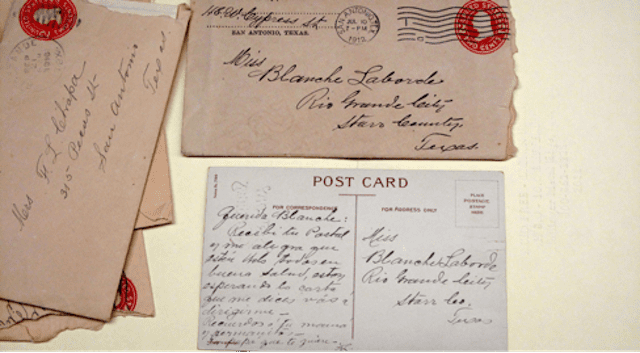 Mrs F L Chapa
315 Pecus St
San Antonio
Texas
W. Cypress St
SAN ANTONIO, TEXAS.
SAN ANTONIO, TEX.
JUL 10
7-PM
1912
UNITED STATES
TWO CENTS
Miss
Blanche Laborde
Rio Grande City
Starr County
Texas
POST CARD
FOR CORRESPONDENCE
FOR ADDRESS ONLY
PLACE
POSTAGE
STAMP
HERE
Querida Blanche:
Recibi tu Postal
y me alegra que
estén Uds todos en
buena salud, estoy
esperando la carta
que me dices vas á
dirigirme—
Recuerdos á tu mama
y hermanitos—
que te quiere
Miss
Blanche Laborde
Rio Grande City
Starr Co,
Texas